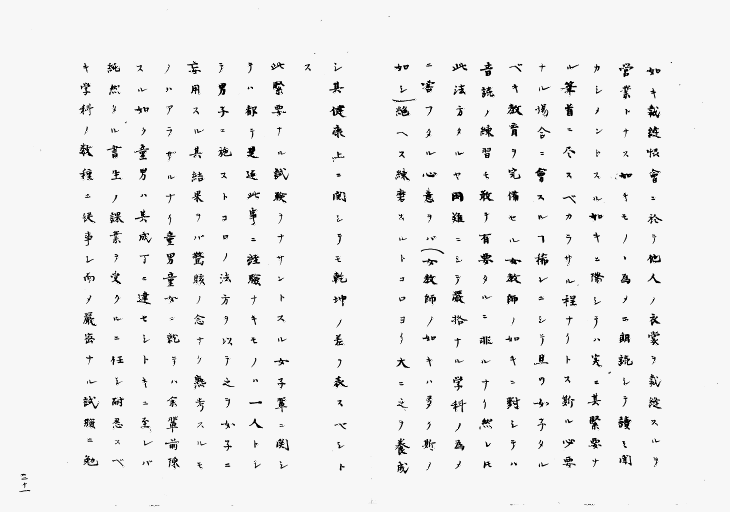 如キ裁縫帳會ニ於テ他人ノ衣裳ヲ裁縫スルヲ
營業トナス如キモノヽ為メニ朗読シテ讀ミ聞
カシメントスル如キニ際シテハ実ニ其緊要ナ
ル筆首ニ尽スベカラサル程ナリトス斯ル必要
ナル場合ニ會スルヿ稀レニシテ且ツ女子タル
ベキ教育ヲ完備セル女教師ノ如キニ對シテハ
音読ノ練習モ敢テ有要タルニ非ルナリ然レ𪜈
此法方タルヤ困難ニシテ嚴格ナル学科ノ為メ
ニ害フタル心意ヲバ(女教師ノ如キハ多ク斯ノ
如シ)絶ヘス練磨スルトコロヨリ大ニ之ヲ養成
ス
シ其健康上ニ関シテモ乾坤ノ差ヲ表スベシト
此緊要ナル試験ヲナサントスル女子輩ニ関シ
テハ都テ是迄此事ニ経驗ナキモノハ一人トシ
テ男子ニ施ストコロノ法方ヲ以テ之ヲ女子ニ
妄用スル其結果ヲバ驚駭ノ念ナク熟考スルモ
ノハアラザルナリ童男童女ニ就テハ余輩前陳
スル如ク童男ハ其成丁ニ達セントキニ至レバ
純然タル書生ノ課業ヲ受クルニ任シ耐忍スベ
キ学科ノ教程ニ従事シ而メ嚴密ナル試験ニ勉
二十一